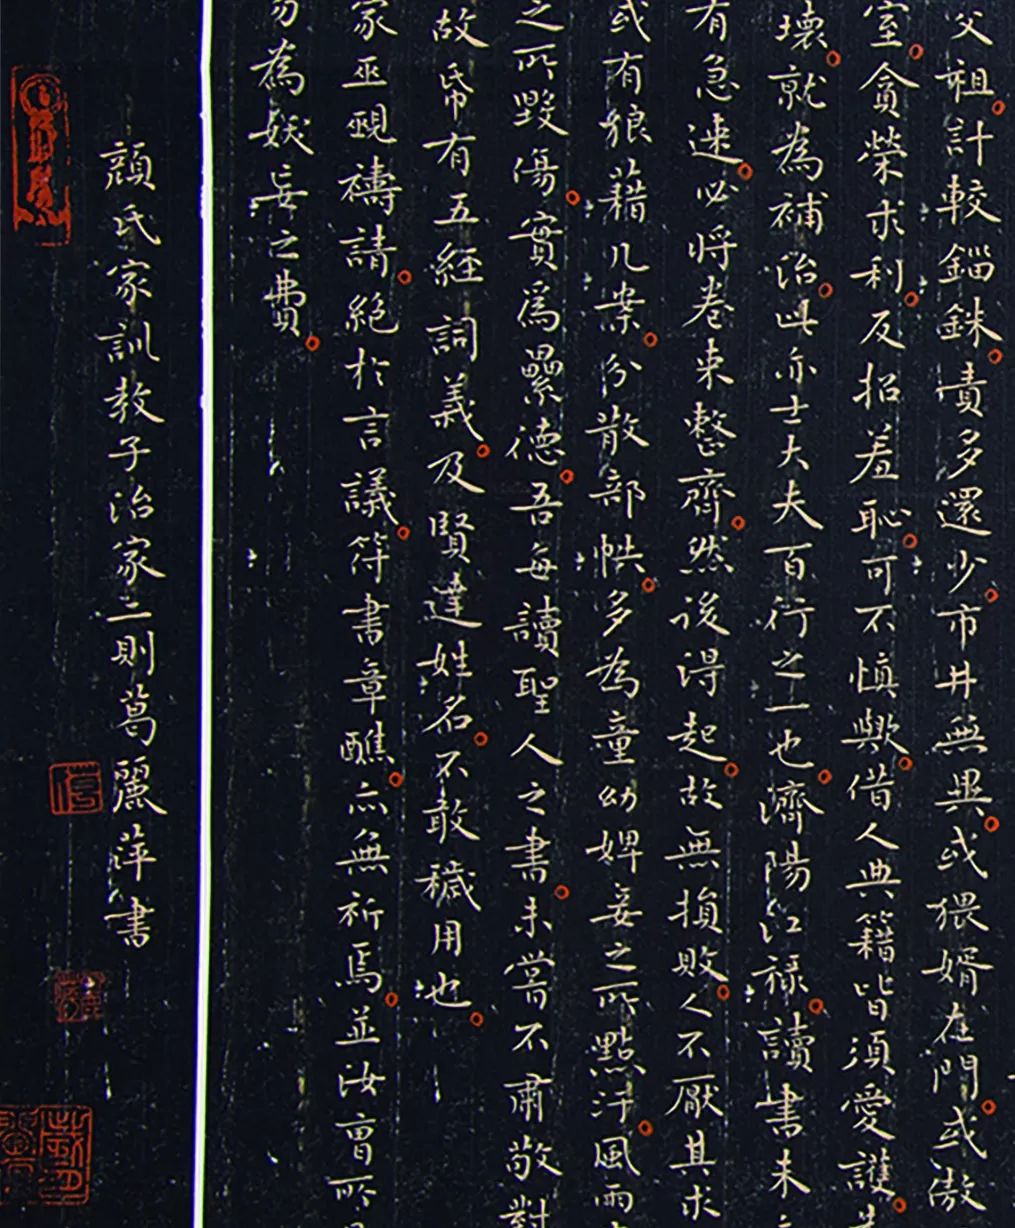 父祖計較錙銖責多還少市井無異或猥婿在門或傲
室貪榮求利反招羞恥可不慎歟借人典籍皆須愛護
壞就為補治此亦士大夫百行之一也濟陽江祿讀書未
有急速必將卷束整齊然後得起故無損敗人不厭其求
或有狼藉几案分散部帙多為童幼婢妾之所點汙風雨
之所毀傷實爲纍德吾每讀聖人之書未嘗不肅敬對
故帋有五經詞義及賢達姓名不敢穢用也
家巫覡禱請絕於言議符書章醮亦無祈焉並汝曹所
勿為妖妄之費
顏氏家訓教子治家二則葛麗萍書